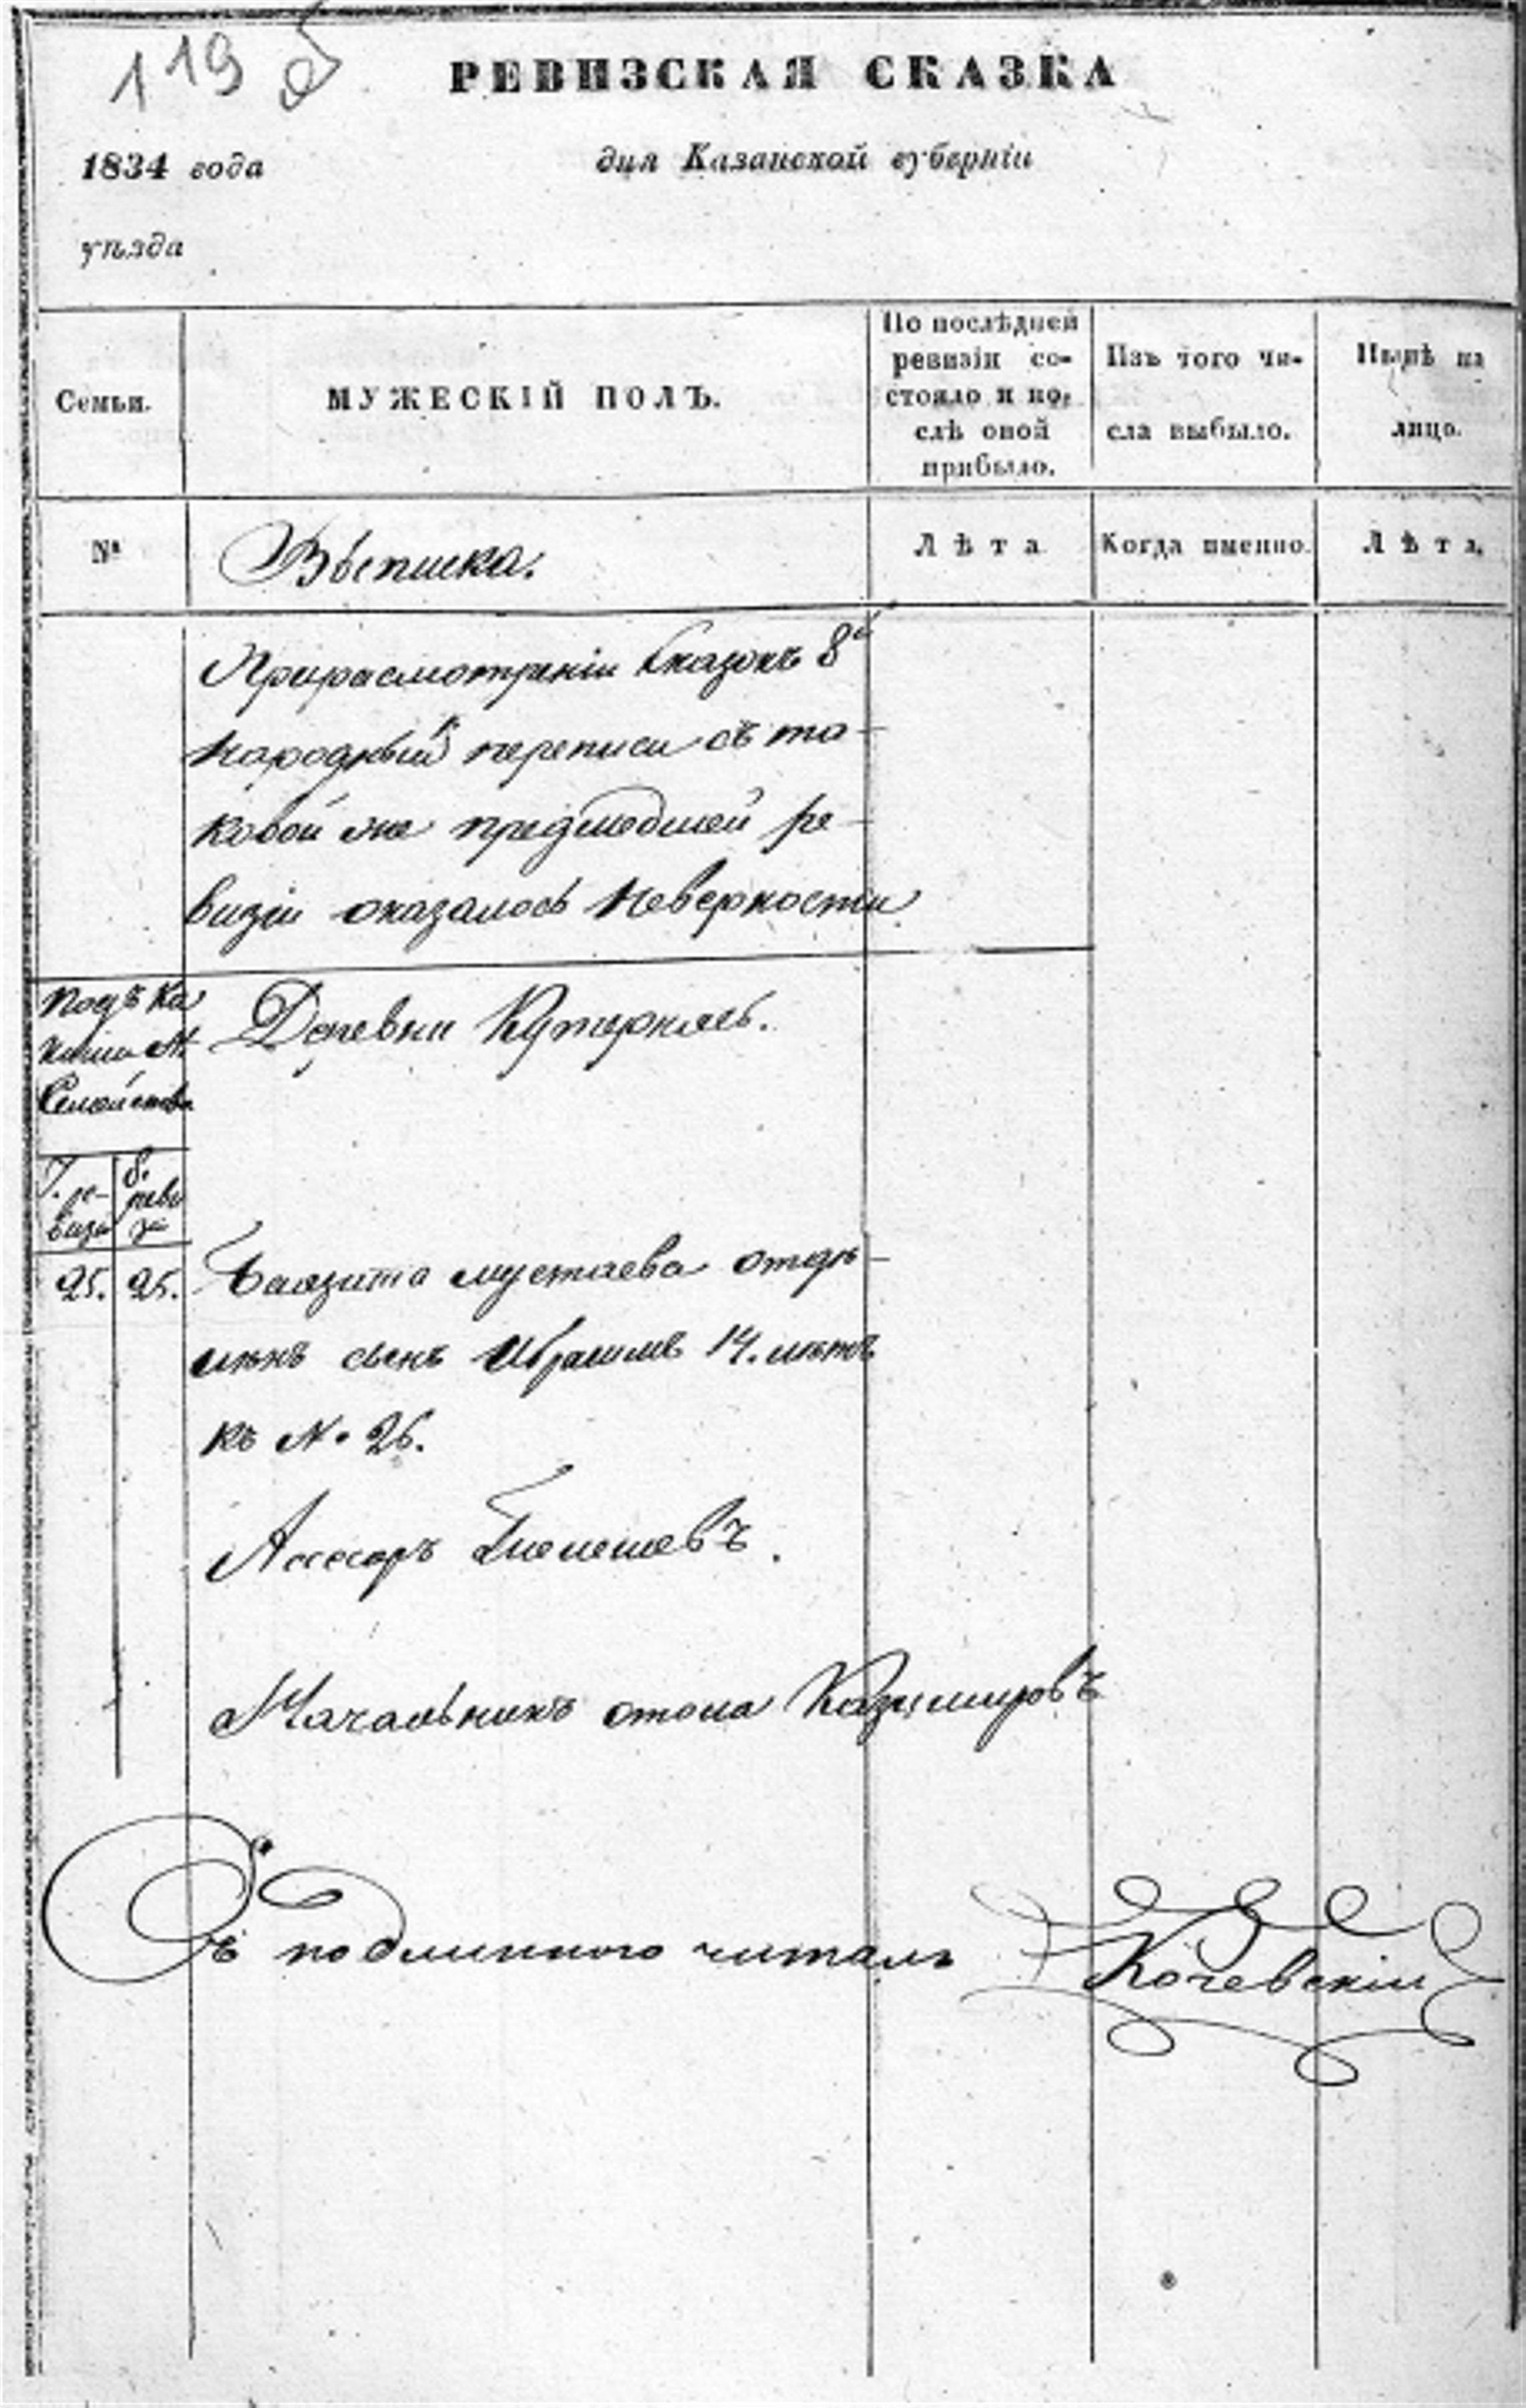 119 об
РЕВИЗСКАЯ СКАЗКА
1834 года
дня Казанской губерніи
уѣзда
Семьи.
МУЖЕСКІЙ ПОЛЪ.
По послѣдней
ревизіи со-
стояло и по-
слѣ оной
прибыло.
Изъ того чи-
сла выбыло.
Нынѣ на
лицо.
№
Выписка.
Лѣта
Когда именно.
Лѣта.
Прирасмотреніи Сказокъ 8й
Народный переписи съ та-
ковой же предшедшей ре-
визіи оказалось Неверности
подъ ка
кими №
Семейства
Деревни Кутеркиль.
7. ре-
визи
8.
реви
зи
25. 25.
Баязита мустаева отдѣ-
ленъ сынъ Ибрагимъ 14. летъ
къ № 26.
Асесоръ
Начальникъ стола Казимировъ
Съ подлиннаго читалъ
Кочевскій